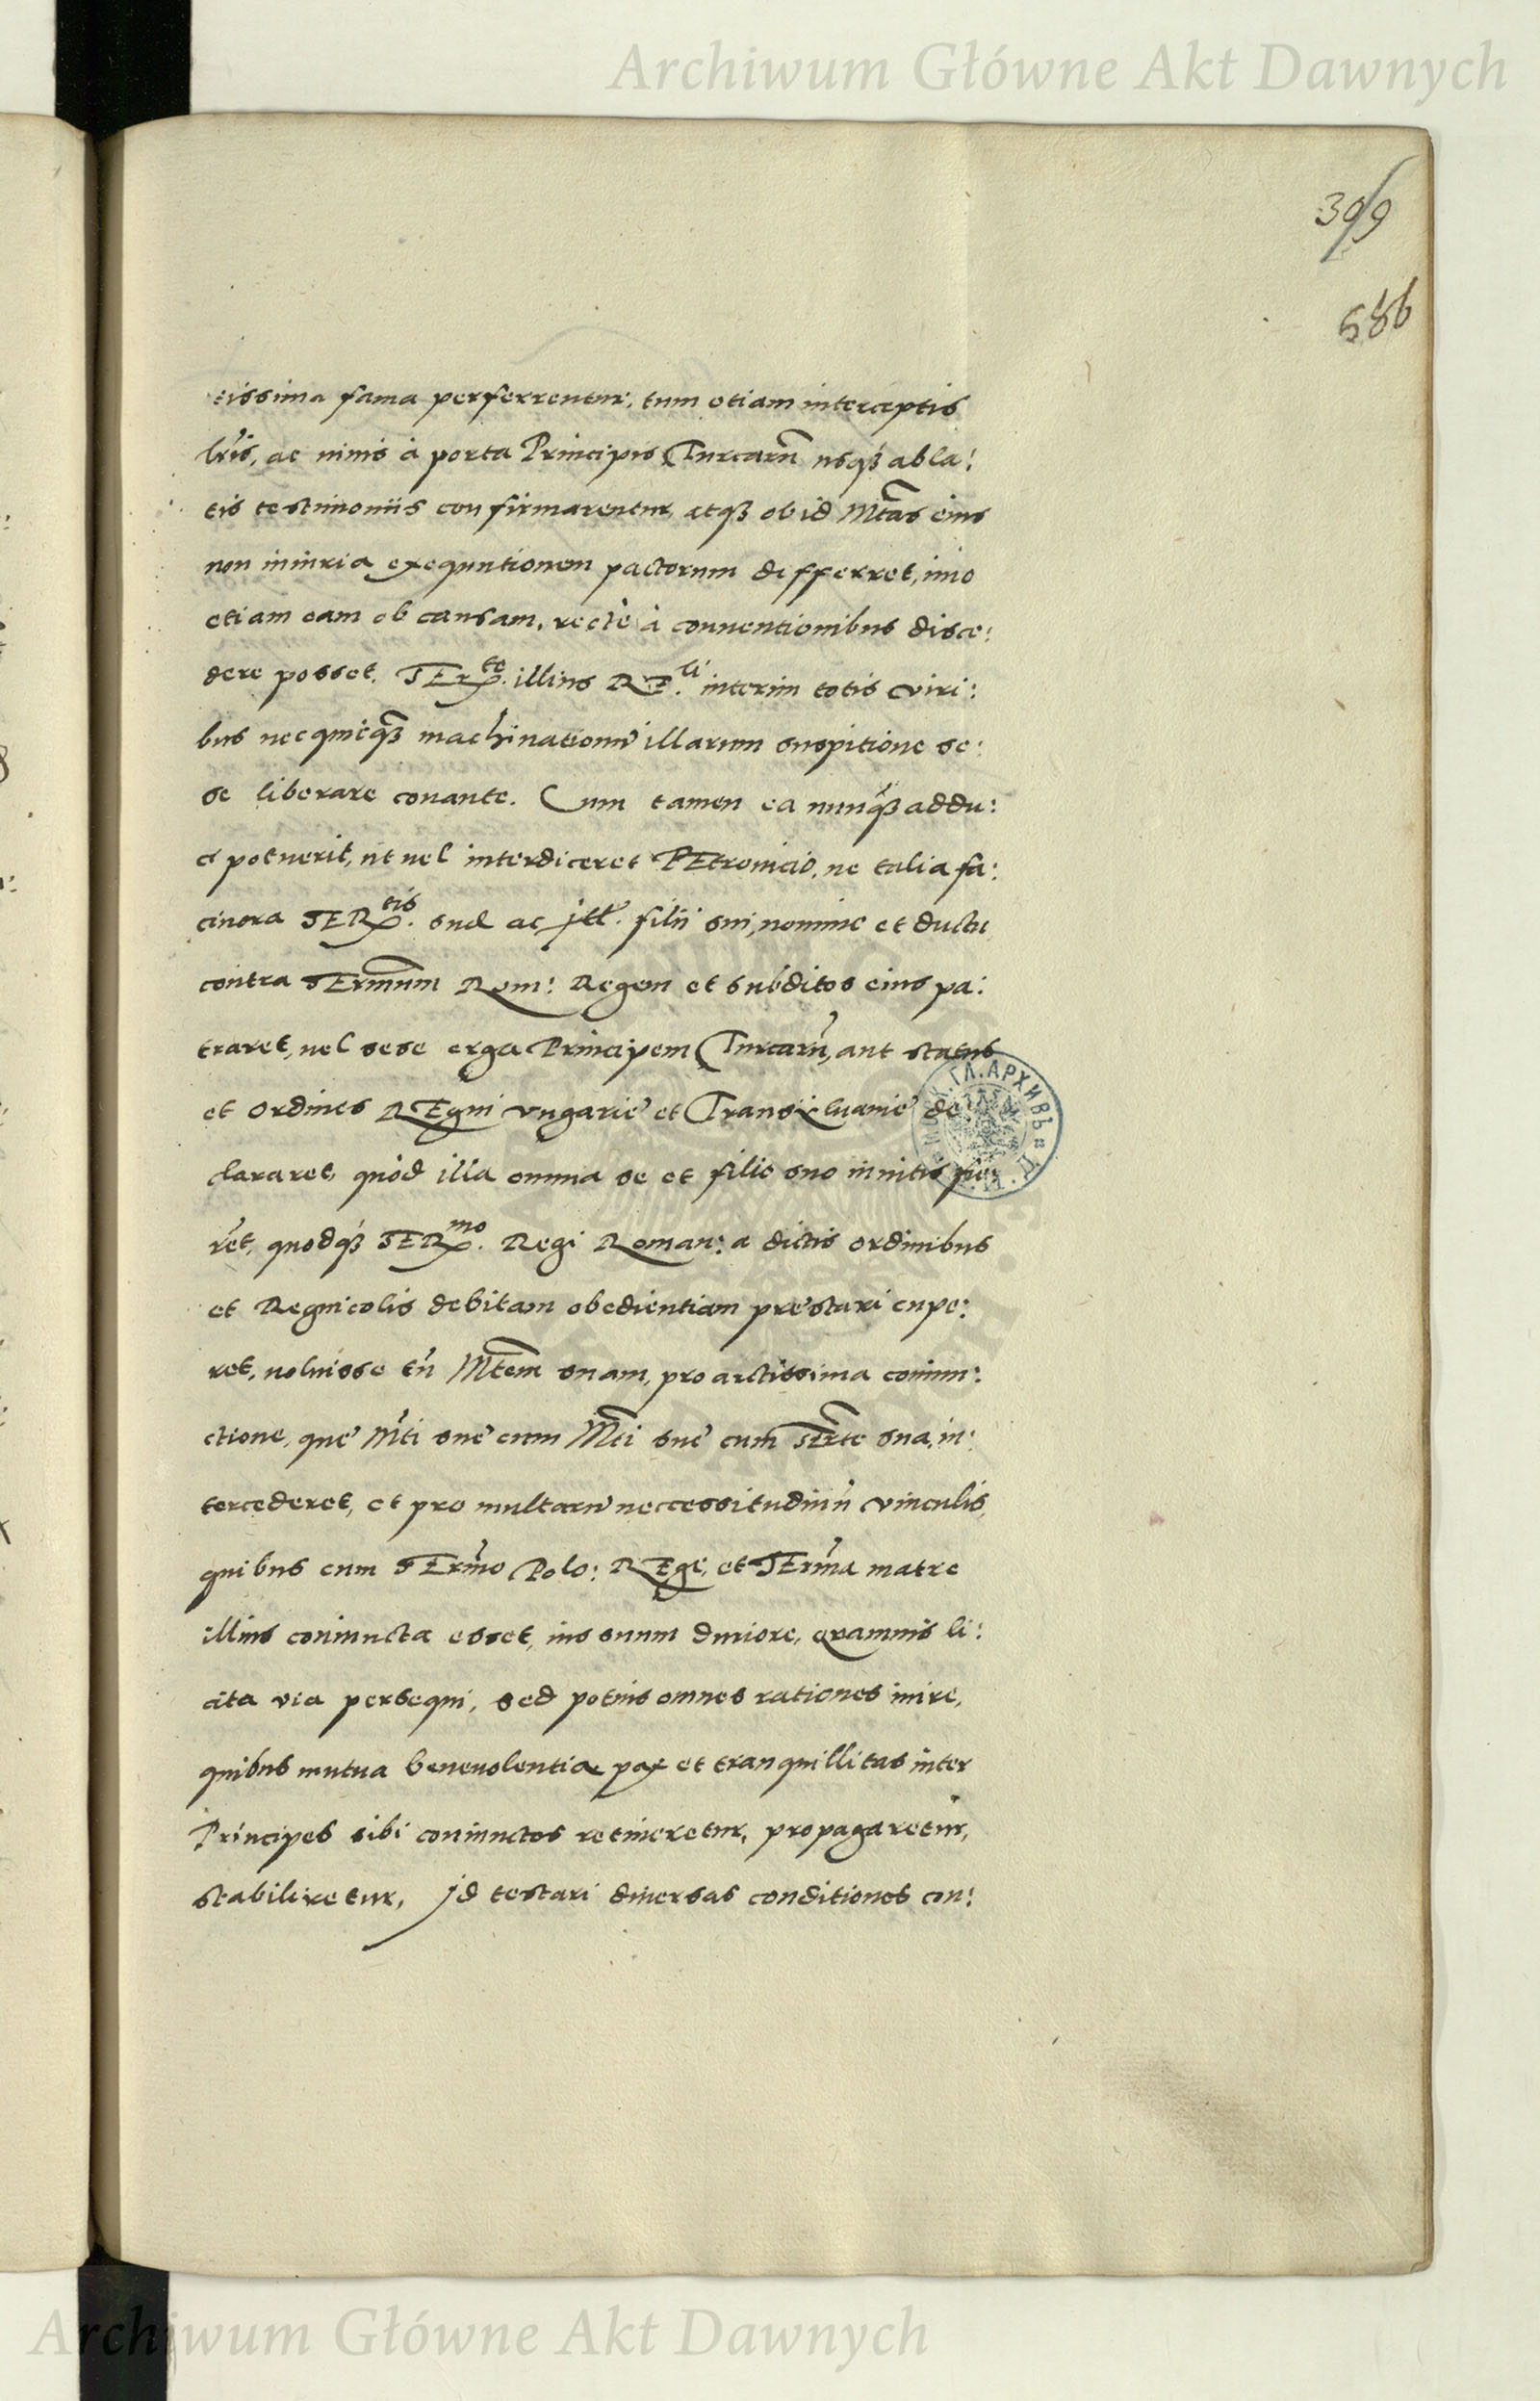 Archiwum Główne Akt Dawnych
399
586
tissima fama perferrentur, tum etiam interceptis
lr̃is, ac uiuis à porta Principis Turcarũ usq́ꝫ abla:
tis testimoniis confirmarentur, atqꝫ ob id Mt̃as eius
non iniuria exequutionem pactorum differret, imo
etiam eam ob causam, rectè à conuentionibus disce:
dere posset. SErte. illius RE.li interim totis viri:
bus necquicq̃ꝫ machinationũ illarum suspitione se:
se liberare conante. Cum tamen ea nunq̃ꝫ addu:
ci potuerit, ut uel interdiceret PEtrouicio, ne talia fa:
cinora SERtis. suę ac jll. filii sui, nomine et ductu
contra SErm̃um Rom: Regem et subditos eius pa:
traret, uel sese erga Principem Turcarũ, aut status
et Ordines REgni vngarię et Transiluanię de
clararet, quòd illa omnia se et filio suo inuitis fie:
rẽt, quodq́ꝫ SERmo. Regi Roman: a dictis ordinibus
et Regnicolis debitam obedientiam pręstari cupe:
ret, uoluisse tñ Mt̃em suam, pro arctissima coniun:
ctione, quę Mt̃i suę cum Mt̃i suę cum SErt̃e sua, in:
tercederet, et pro multarũ neccessitudinũ vinculis,
quibus cum SErm̃o Polo: REge, et SErm̃a matre
illius coniuncta esset, ius suum duriore, q̃ramuis li:
cita via persequi, sed potius omnes rationes inire,
quibus mutua beneuolentia pax et tranquillitas inter
Principes sibi coniunctos retineretur, propagaretur,
stabiliretur, jd testari diuersas conditiones con:
ГЛ. АРХИВЪ
Archiwum Główne Akt Dawnych